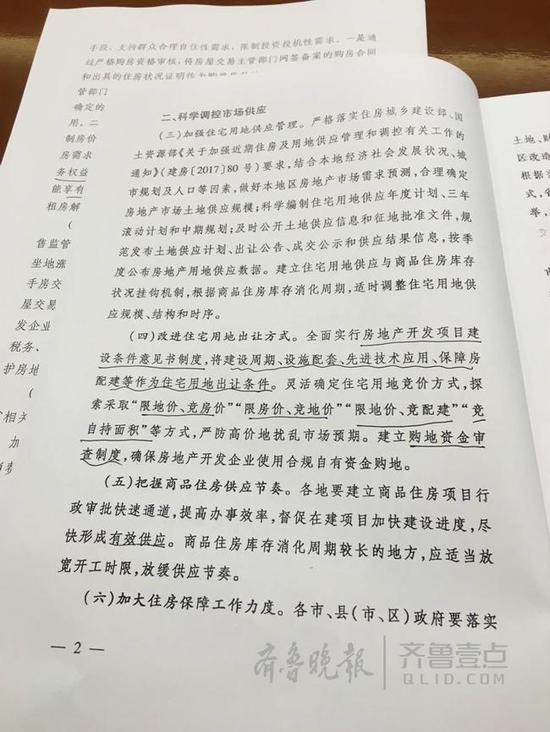 手段、支持群众合理自住性需求，限制投资投机性需求。一是通
过严格购房资格审核，将房屋交易主管部门网签备案的购房合同
和出具的住房状况证明作为
管部门
确定的
用。二
制房价
房需求
务权益
能享有
租房解
（
售监管
坐地涨
手房交
屋交易
发企业
税务、
护房地
（
扩相关
加
二、科学调控市场供应
（三）加强住宅用地供应管理。严格落实住房城乡建设部、国
土资源部《关于加强近期住房及用地供应管理和调控有关工作的
通知》（建房〔2017〕80号）要求，结合本地经济社会发展状况、城
市规划及人口等因素，做好本地区房地产市场需求预测，合理确定
房地产市场土地供应规模；科学编制住宅用地供应年度计划、三年
滚动计划和中期规划；及时公开土地供应信息和征地批准文件，规
范发布土地供应计划、出让公告、成交公示和供应结果信息，按季
度公布房地产用地供应数据。建立住宅用地供应与商品住房库存
状况挂钩机制，根据商品住房库存消化周期，适时调整住宅用地供
应规模、结构和时序。
（四）改进住宅用地出让方式。全面实行房地产开发项目建
设条件意见书制度，将建设周期、设施配套、先进技术应用、保障房
配建等作为住宅用地出让条件。灵活确定住宅用地竞价方式，探
索采取“限地价、竞房价”“限房价、竞地价”“限地价、竞配建”“竞
自持面积”等方式，严防高价地扰乱市场预期。建立购地资金审
查制度，确保房地产开发企业使用合规自有资金购地。
（五）把握商品住房供应节奏。各地要建立商品住房项目行
政审批快速通道，提高办事效率，督促在建项目加快建设进度，尽
快形成有效供应。商品住房库存消化周期较长的地方，应适当放
宽开工时限，放缓供应节奏。
（六）加大住房保障工作力度。各市、县（市、区）政府要落实
— 2 —
土地、
区改造
根据
式，
齐鲁晚报
齐鲁壹点
QLID.COM